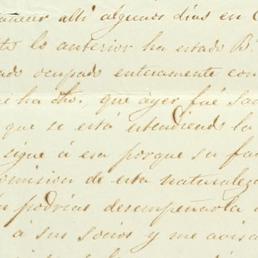 allí algunos días en
lo anterior ha estado B.
ado ocupado enteramente con
e ha dho. que ayer fué
que se está estendiendo la
sigue á esa porque su fa
omision de esta naturalez
podrias desempeñarla
á sus socios y me avisa